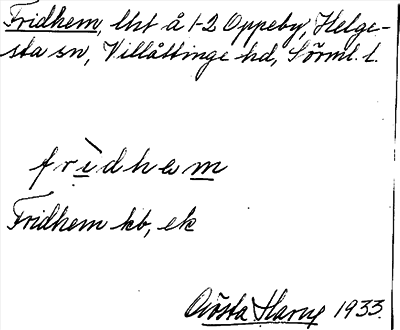 Fridhem, lht å 1-2 Oppeby, Helge-
sta sn, Villåttinge hd, Sörml. l.
frì̱dhem̱
Fridhem kb, ek
Gösta Harng 1933.